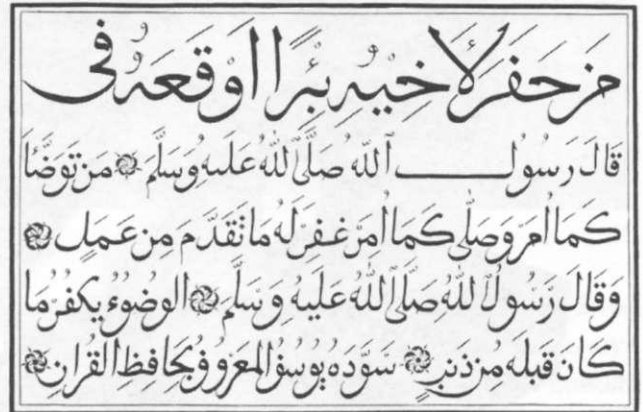 مَن حَفَرَ لِأَخِيهِ بِئْرًا أَوْقَعَهُ فِى
قَالَ رَسُولُ ٱللَّهِ صَلَّى ٱللَّهُ عَلَيْهِ وَسَلَّمَ مَن تَوَضَّأَ
كَمَا أُمِرَ وَصَلَّى كَمَا أُمِرَ غُفِرَ لَهُ مَا تَقَدَّمَ مِن عَمَلٍ
وَقَالَ رَسُولُ ٱللَّهِ صَلَّى ٱللَّهُ عَلَيْهِ وَسَلَّمَ الوُضُوءُ يُكَفِّرُ مَا
كَانَ قَبْلَهُ مِن ذَنْبٍ سَوَّدَهُ يُوسُفُ المَعْرُوفُ بِحَافِظِ القُرْآنِ